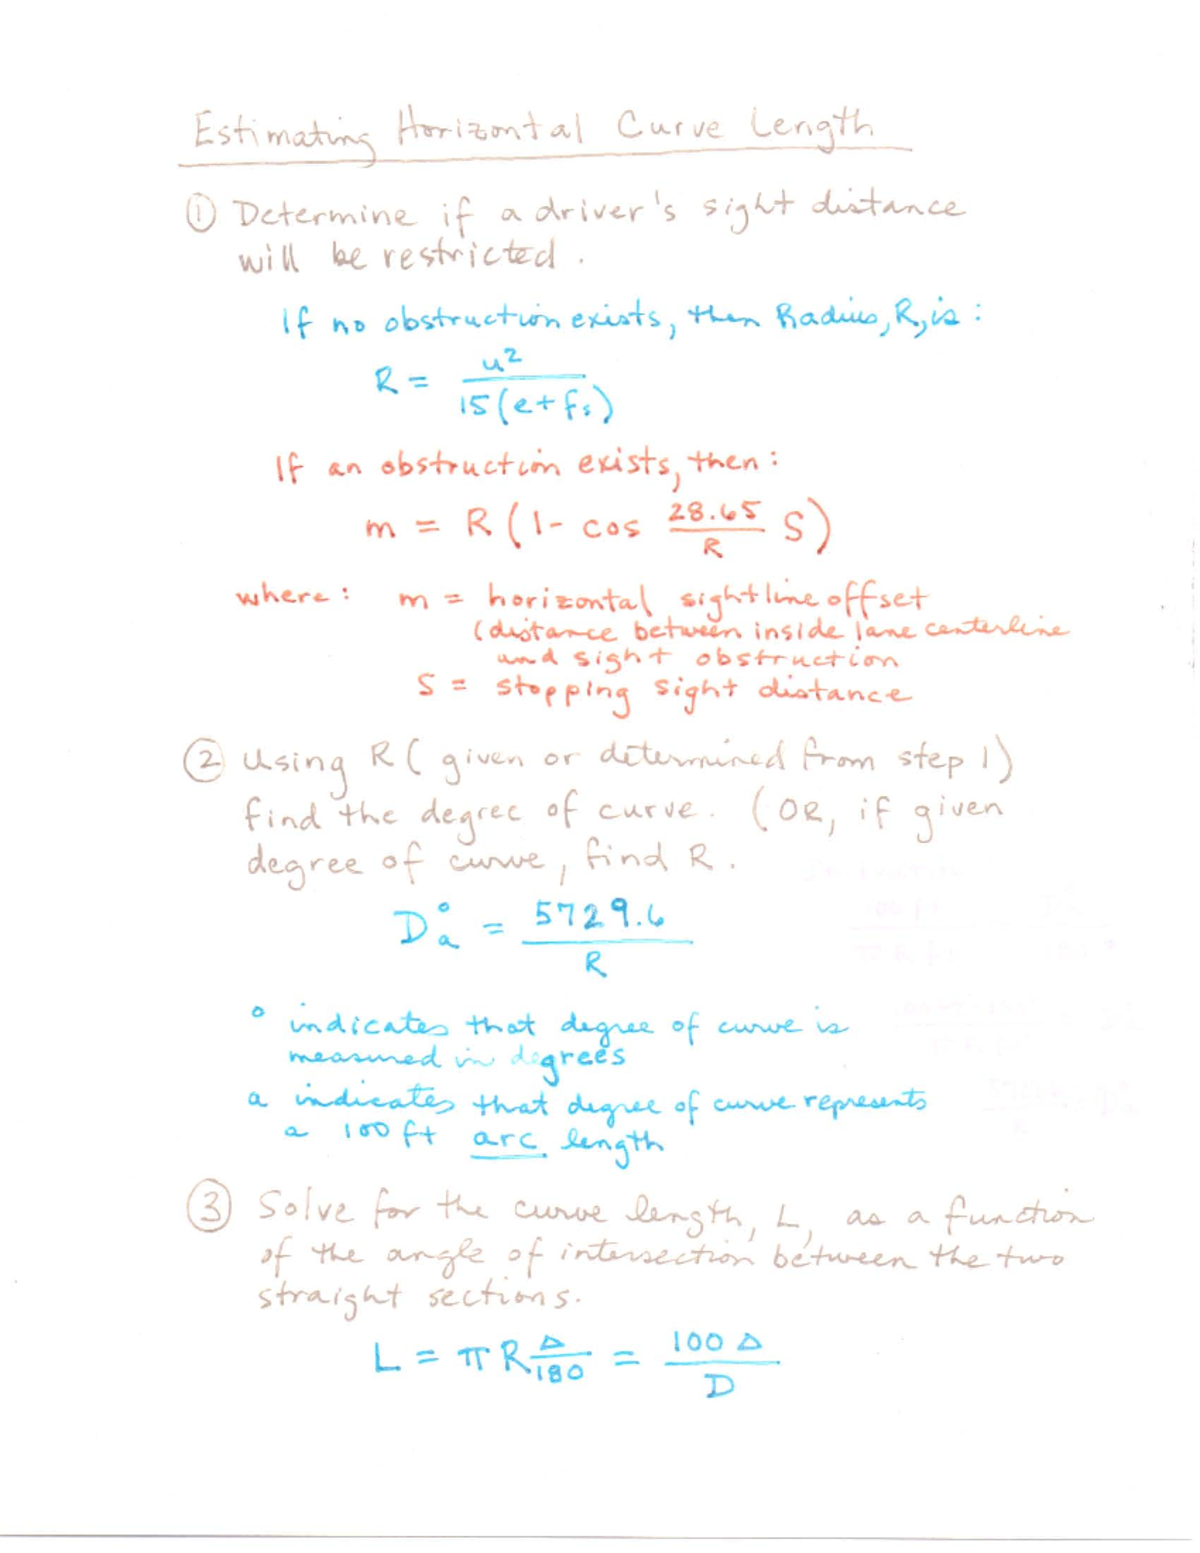 Estimating Horizontal Curve Length
① Determine if a driver's sight distance
will be restricted.
If no obstruction exists, then Radius, R, is:
R = u² / 15(e+fs)
If an obstruction exists, then:
m = R(1- cos 28.65/R S)
where: m = horizontal sightline offset
(distance between inside lane centerline
and sight obstruction
S = stopping sight distance
② Using R (given or determined from step 1)
find the degree of curve. (OR, if given
degree of curve, find R.
D°a = 5729.6 / R
° indicates that degree of curve is
measured in degrees
a indicates that degree of curve represents
a 100 ft arc length
③ Solve for the curve length, L, as a function
of the angle of intersection between the two
straight sections.
L = πR Δ/180 = 100 Δ / D